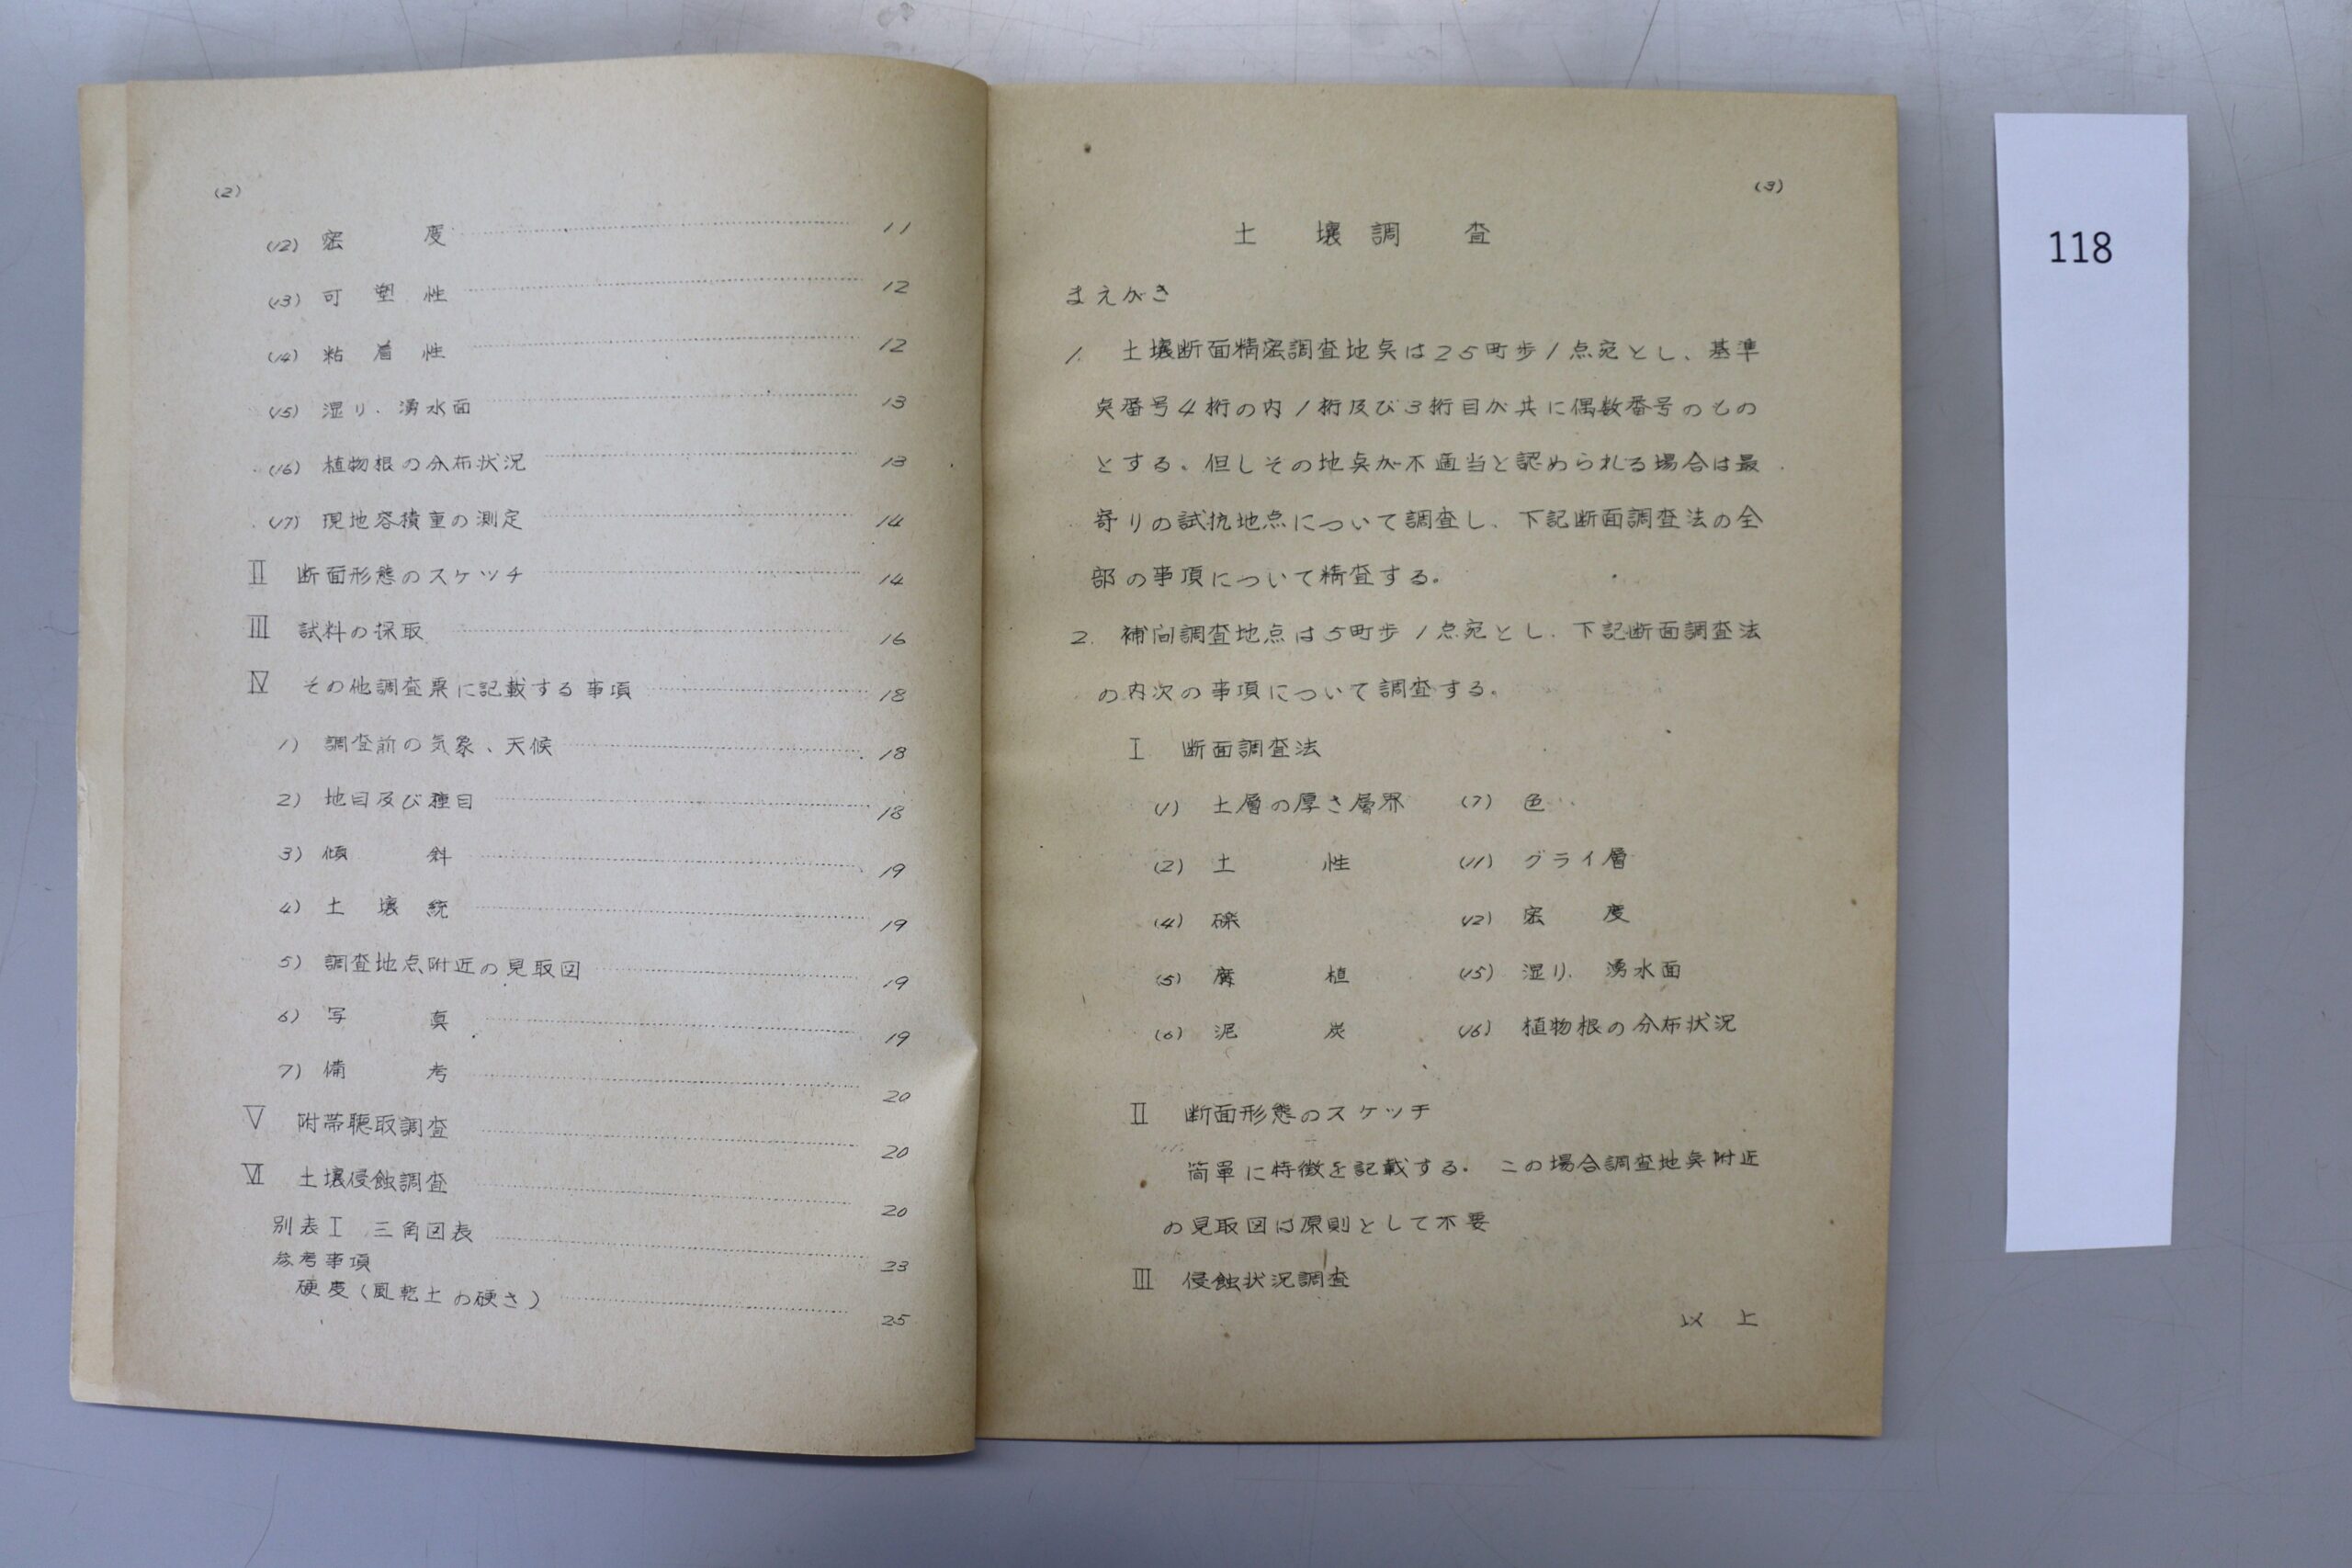 (2)
(12) 密度 11
(13) 可塑性 12
(14) 粘着性 12
(15) 湿り、湧水面 13
(16) 植物根の分布状況 13
(17) 現地容積重の測定 14
Ⅱ 断面形態のスケッチ 14
Ⅲ 試料の採取 16
Ⅳ その他調査票に記載する事項 18
1) 調査前の気象、天候 18
2) 地目及び種目 18
3) 傾斜 19
4) 土壌統 19
5) 調査地点附近の見取図 19
6) 写真 19
7) 備考 20
Ⅴ 附帯聴取調査 20
Ⅵ 土壌侵蝕調査 20
別表Ⅰ 三角図表 23
参考事項
硬度(風乾土の硬さ) 25
(3)
土壌調査
まえがき
1. 土壌断面精密調査地点は25町歩1点宛とし、基準
点番号4桁の内1桁及び3桁目が共に偶数番号のもの
とする。但しその地点が不適当と認められる場合は最
寄りの試抗地点について調査し、下記断面調査法の全
部の事項について精査する。
2. 補間調査地点は5町歩1点宛とし、下記断面調査法
の内次の事項について調査する。
Ⅰ 断面調査法
(1) 土層の厚さ層界 (7) 色
(2) 土性 (11) グライ層
(4) 礫 (12) 密度
(5) 腐植 (15) 湿り、湧水面
(6) 泥炭 (16) 植物根の分布状況
Ⅱ 断面形態のスケッチ
簡単に特徴を記載する。この場合調査地点附近
の見取図は原則として不要
Ⅲ 侵蝕状況調査
以上
118